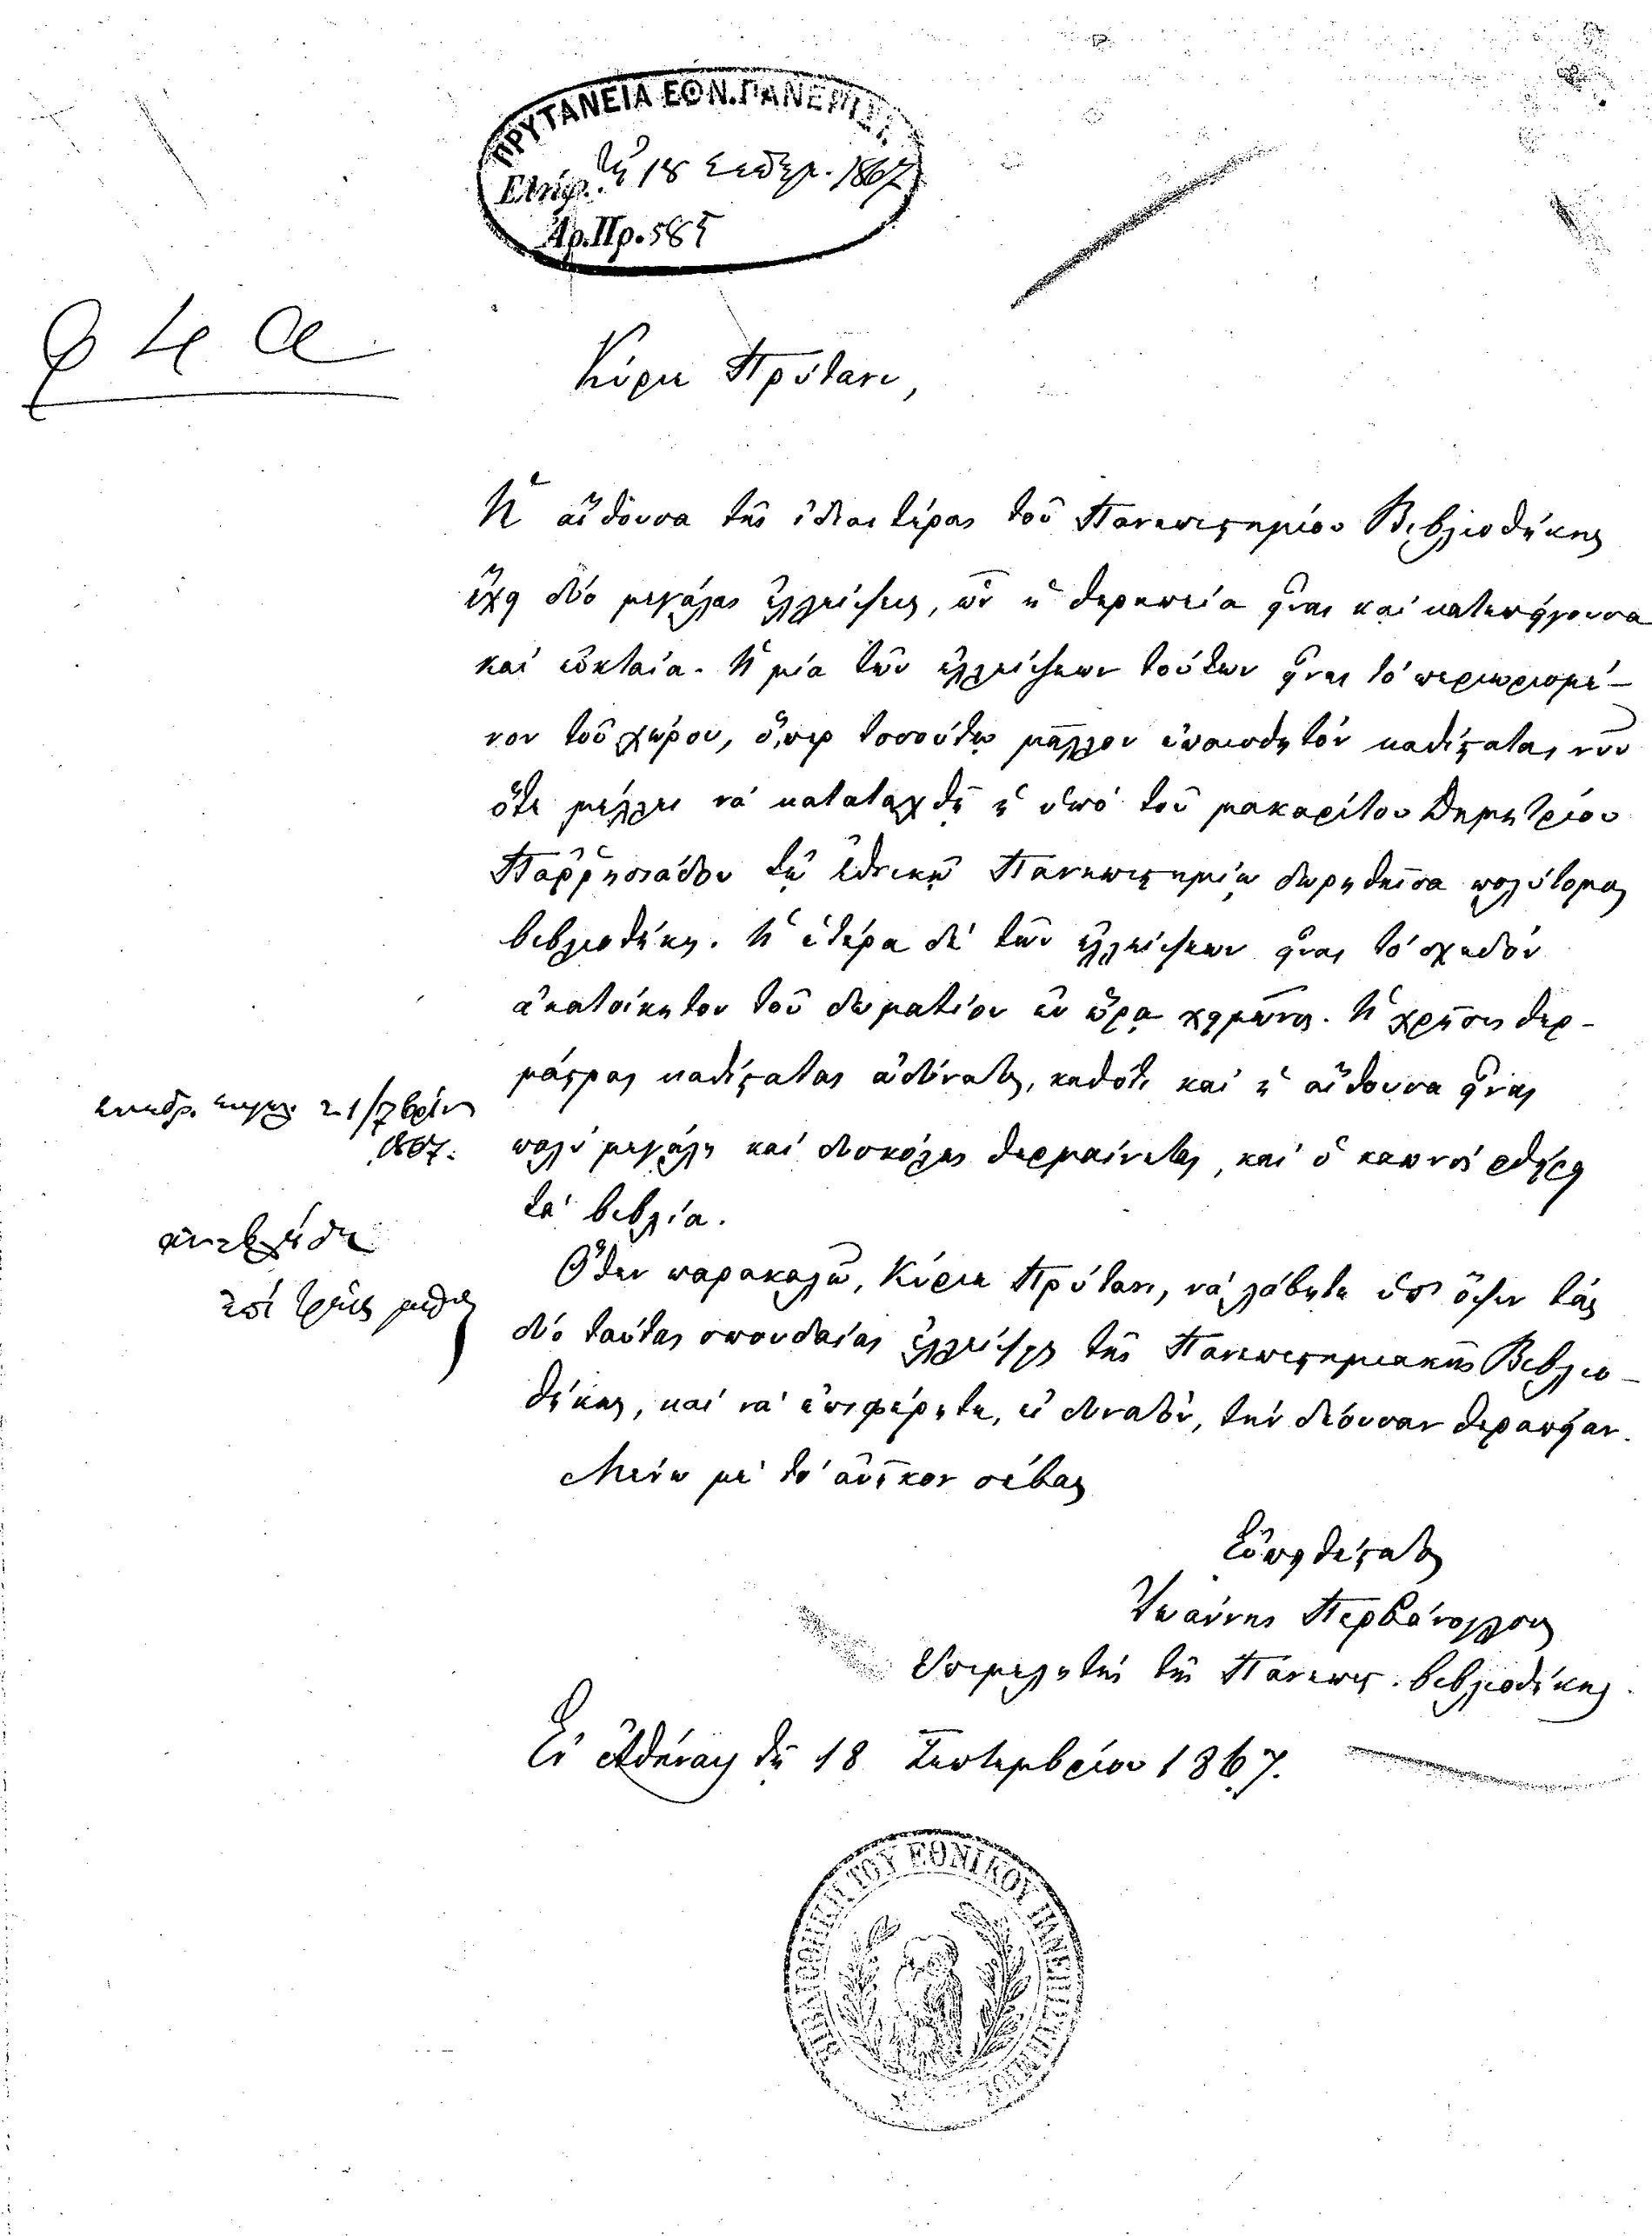 ΠΡΥΤΑΝΕΙΑ ΕΘΝ. ΠΑΝΕΠΙΣΤ.
Ἐλήφ. τῇ 18 Σεπτεμ. 1867
Ἀρ. Πρ. 585
Κύριε Πρύτανι,
Ἡ αἴθουσα τῆς ἰδιαιτέρας τοῦ Πανεπιστημίου Βιβλιοθήκης
ἔχει δύο μεγάλας ἐλλείψεις, ὧν ἡ θεραπεία εἶναι καὶ κατεπείγουσα
καὶ εὐκταία. Ἡ μία τῶν ἐλλείψεων τούτων εἶναι τὸ περιωρισμέ-
νον τοῦ χώρου, ὅπερ τοσούτῳ μᾶλλον ἐπαισθητὸν καθίσταται νῦν
ὅτε μέλλει νὰ καταταχθῇ ἡ ὑπὸ τοῦ μακαρίτου Δημητρίου
Παῤῥησιάδου τῷ Ἐθνικῷ Πανεπιστημίῳ δωρηθεῖσα πολύτομος
βιβλιοθήκη. Ἡ ἑτέρα δὲ τῶν ἐλλείψεων εἶναι τὸ σχεδὸν
ἀκατοίκητον τοῦ δωματίου ἐν ὥρᾳ χειμῶνος. Ἡ χρῆσις θερ-
μάστρας καθίσταται ἀδύνατος, καθότι καὶ ἡ αἴθουσα εἶναι
πολὺ μεγάλη καὶ δυσκόλως θερμαίνεται, καὶ ὁ καπνὸς φθείρει
τὰ βιβλία.
Ὅθεν παρακαλῶ, Κύριε Πρύτανι, νὰ λάβητε ὑπ' ὄψιν τὰς
δύο ταύτας σπουδαίας ἐλλείψεις τῆς Πανεπιστημιακῆς Βιβλιο-
θήκης, καὶ νὰ ἐπιφέρητε, εἰ δυνατὸν, τὴν δέουσαν θεραπείαν.
Μένω μὲ τὸ ἀνῆκον σέβας
Εὐπειθέστατος
Ἰωάννης Περβάνογλους
Ἐπιμελητὴς τῆς Πανεπισ. βιβλιοθήκης.
Ἐν Ἀθήναις τῇ 18 Σεπτεμβρίου 1867.
συνεδρ. 21/7βρίου
1867.
ἀνεβλήθη
ἐπὶ τοῦ
ΒΙΒΛΙΟΘΗΚΗ ΤΟΥ ΕΘΝΙΚΟΥ ΠΑΝΕΠΙΣΤΗΜΙΟΥ